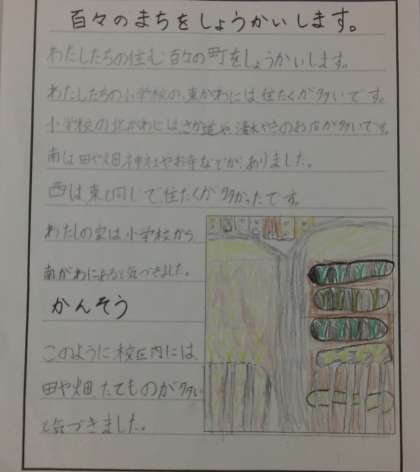 百々のまちをしょうかいします。
わたしたちの住む百々の町をしょうかいします。
わたしたちの小学校の、東がわには、住たくが多いです。
小学校の北がわにはさか道や清水やきのお店が多いです。
南は田や畑神社やお寺などが、ありました。
西は東と同じで住たくが多かったです。
わたしの家は小学校から
南がわにあると気づきました。
かんそう
このように校区内には、
田や畑、たてものが多い
と気づきました。